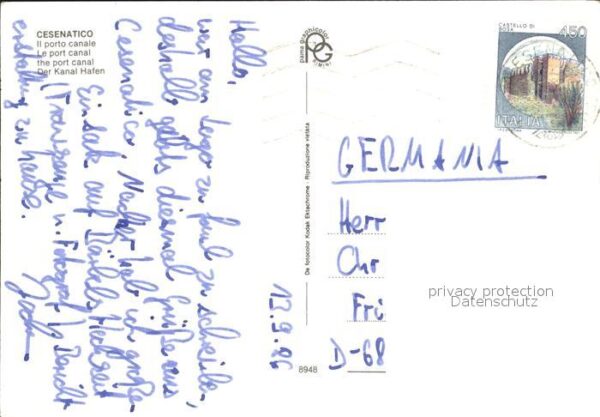 CESENATICO
Il porto canale
Le port canal
the port canal
Der Kanal Hafen
Hallo,
war am Lago zu faul zu schreiben,
deshalb gibts diesmal Grüße aus
Cesenatico. Nachher hab ich große-
Einsatz auf Bärbels Hochzeit
(Trauzeuge u. Fotograf)
zu hause.
12.9.86
pama graphicolor
PG
RIMINI
De fotocolor Kodak Ektachrome - Riproduzione vietata
8948
CASTELLO DI
450
ITALIA
GERMANIA
Herr
Chr
Fri
D-68
privacy protection
Datenschutz